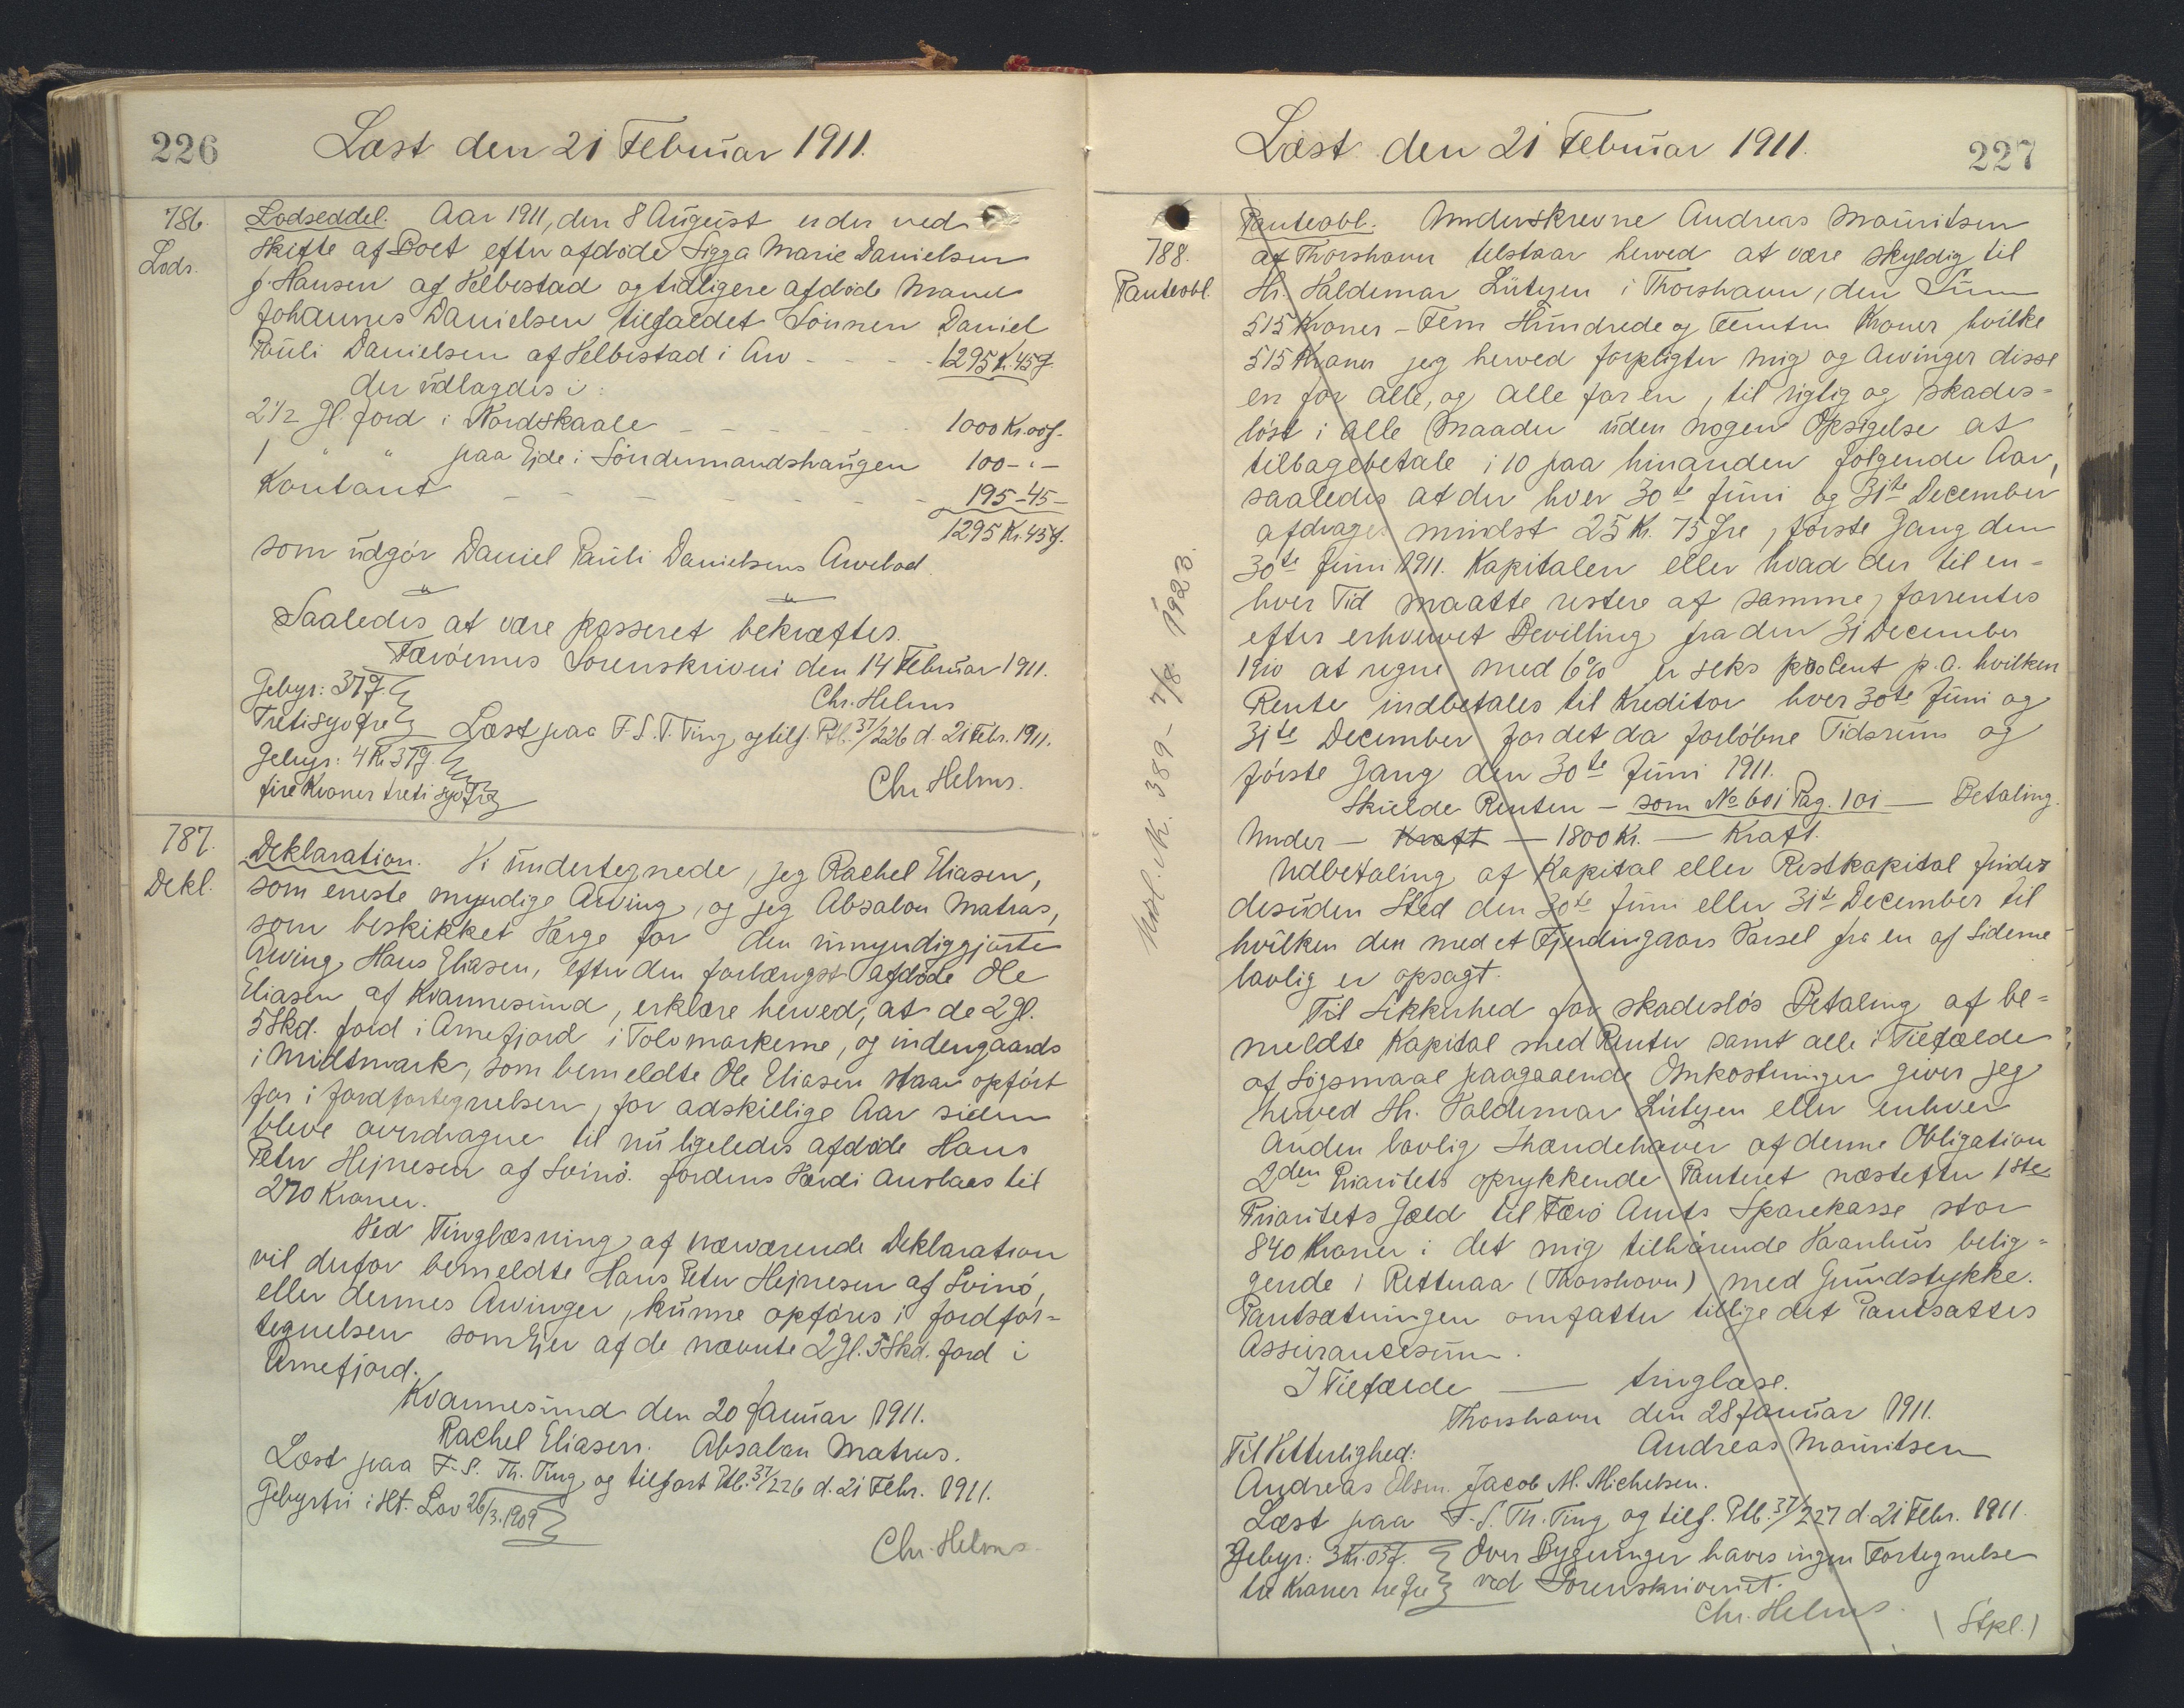 226
Læst den 21 Februar 1911.
786.
Lods.
Lodseddel. Aar 1911, den 8 August er der ved
Skifte af Boet efter afdøde Sigga Marie Danielsen
f. Hansen af Velbestad og tidligere afdøde Mand
Johannes Danielsen tilfaldet Sønnen Daniel
Pauli Danielsen af Velbestad i Arv - - - - 1295 K. 45 Ø.
der udlagdes i:
2 1/2 Gl. Jord i Nordskaale - - - - - - 1000 Kr. 00 Ø.
1 " " paa Ejde i Söndermandshaugen 100 - " -
Kontant - - - - - - - 195 - 45 -
1295 Kr. 45 Ø.
som udgör Daniel Pauli Danielsens Arvelod.
Saaledes at være passeret bekræftes.
Færöernes Sorenskriveri den 14 Februar 1911.
Gebyr: 37 Ø.
Chr. Helms
Tretisyv Øre
Læst paa T. S. T. Ting og tilf. Ptb. 37/226 d. 21 Febr. 1911.
Gebyr: 4 Kr 37 Ø.
fire Kroner treti syv Øre
Chr Helms.
787.
Dekl.
Deklaration. Vi undertegnede, jeg Rachel Eliasen,
som eneste myndige Arving, og jeg Absalon Matras,
som beskikket Værge for den umyndiggjorte
Arving Hans Eliasen, efter den forlængst afdøde Ole
Eliasen af Kvannesund, erklære herved, at de 2 Gl.
5 Skd. Jord i Arnefjord i Tolvmarkerne, og indengaards
i Midtmark, som bemeldte Ole Eliasen staar opført
for i Jordfortegnelsen, for adskillige Aar siden
bleve overdragne til nu ligeledes afdøde Hans
Peter Hejnesen af Svinö. Jordens Værdi anslaas til
270 Kroner.
Ved Tinglæsning af nærværende Deklaration
vil derfor bemeldte Hans Peter Hejnesen af Svinö,
eller dennes Arvinger, kunne opføres i Jordfor=
tegnelsen som Ejer af de nævnte 2 Gl. 5 Skd. Jord i
Arnefjord.
Kvannesund den 20 Januar 1911.
Rachel Eliasen. Absalon Matras.
Læst paa T. S. Th. Ting og tilført Ptb. 37/226 d. 21 Febr. 1911.
Gebyrfri i Ht. Lov 26/3. 1909
Chr. Helms.
Læst den 21 Februar 1911.
227
788.
Panteobl.
Panteobl. Underskrevne Andreas Mouritsen
af Thorshavn tilstaar herved at være skyldig til
Hr. Valdemar Lützen i Thorshavn, den Sum
515 Kroner - Fem Hundrede og Femten Kroner hvilke
515 Kroner jeg herved forpligter mig og Arvinger disse
en for alle, og alle for en, til rigtig og skades=
løst i alle Maader uden nogen Opsigelse at
tilbagebetale i 10 paa hinanden følgende Aar,
saaledes at der hver 30te Juni og 31te December
afdrages mindst 25 Kr. 75 Øre, første Gang den
30te Juni 1911. Kapitalen eller hvad der til en=
hver Tid maatte restere af samme, forrentes
efter erhvervet Bevilling fra den 31 December
1910 at regne med 6% er seks procent p. a. hvilken
Rente indbetales til Kreditor hver 30te Juni og
31te December for det da forløbne Tidsrum og
første Gang den 30te Juni 1911.
Skulde Renten - som No 601 Pag. 101 - Betaling.
Under - Kraft - 1800 Kr. - Kraft.
Udbetaling af Kapital eller Restkapital finder
desuden Sted den 30te Juni eller 31te December til
hvilken den med et Fjerdingaars Varsel fra en af Siderne
lovlig er opsagt.
Til Sikkerhed for skadesløs Betaling af be=
meldte Kapital med Renter samt alle i Tilfælde
af Søgsmaal paagaaende Omkostninger giver jeg
herved Hr. Valdemar Lützen eller enhver
anden lovlig Ihændehaver af denne Obligation
2den Prioritets oprykkende Panteret næstefter 1ste
Prioritets Gæld til Færø Amts Sparekasse stor
840 Kroner i det mig tilhørende Vaanhus belig=
gende i Retteraa (Thorshavn) med Grundstykke.
Pantsætningen omfatter tillige det Pantsattes
Assurancesum.
I Tilfælde - tinglæse.
Thorshavn den 28 Januar 1911.
Til Vitterlighed:
Andreas Mouritsen
Andreas Olsen. Jacob M. Michelsen.
Læst paa T. S. Th. Ting og tilf. Ptb. 37/227 d. 21 Febr. 1911.
Gebyr: 3 Kr. 03 Ø. Over Bygninger haves ingen Fortegnelse
tre Kroner tre Øre ved Sorenskriveriet.
Chr. Helms.
(Stpl.)
389 - 7/8 1923.